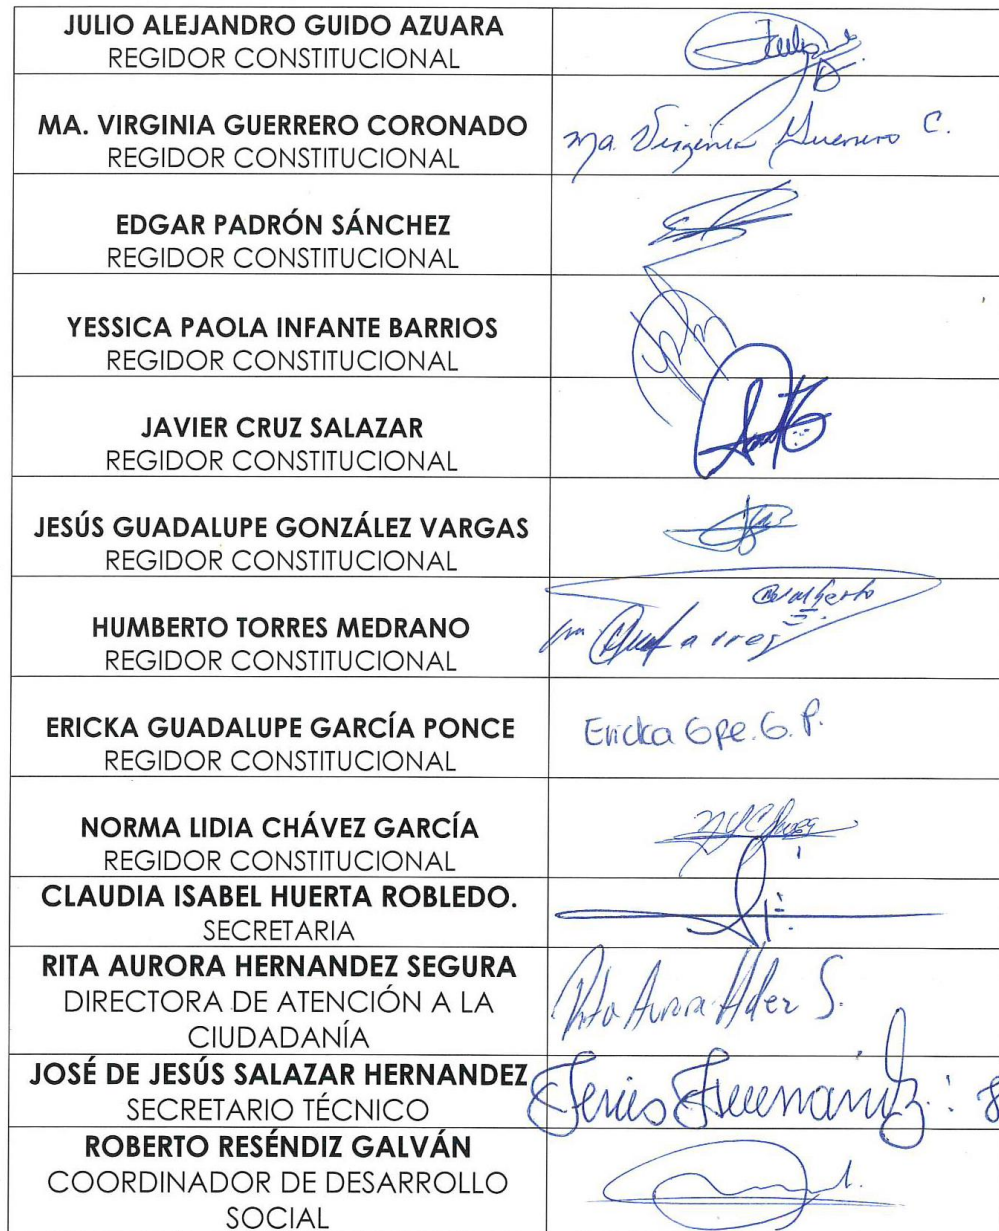 JULIO ALEJANDRO GUIDO AZUARA
REGIDOR CONSTITUCIONAL
MA. VIRGINIA GUERRERO CORONADO
REGIDOR CONSTITUCIONAL
Ma. Virginia Guerrero C.
EDGAR PADRÓN SÁNCHEZ
REGIDOR CONSTITUCIONAL
YESSICA PAOLA INFANTE BARRIOS
REGIDOR CONSTITUCIONAL
JAVIER CRUZ SALAZAR
REGIDOR CONSTITUCIONAL
JESÚS GUADALUPE GONZÁLEZ VARGAS
REGIDOR CONSTITUCIONAL
HUMBERTO TORRES MEDRANO
REGIDOR CONSTITUCIONAL
ERICKA GUADALUPE GARCÍA PONCE
REGIDOR CONSTITUCIONAL
Ericka Gpe. G. P.
NORMA LIDIA CHÁVEZ GARCÍA
REGIDOR CONSTITUCIONAL
CLAUDIA ISABEL HUERTA ROBLEDO.
SECRETARIA
RITA AURORA HERNANDEZ SEGURA
DIRECTORA DE ATENCIÓN A LA
CIUDADANÍA
Rita Aurora Hdez S.
JOSÉ DE JESÚS SALAZAR HERNANDEZ
SECRETARIO TÉCNICO
ROBERTO RESÉNDIZ GALVÁN
COORDINADOR DE DESARROLLO
SOCIAL